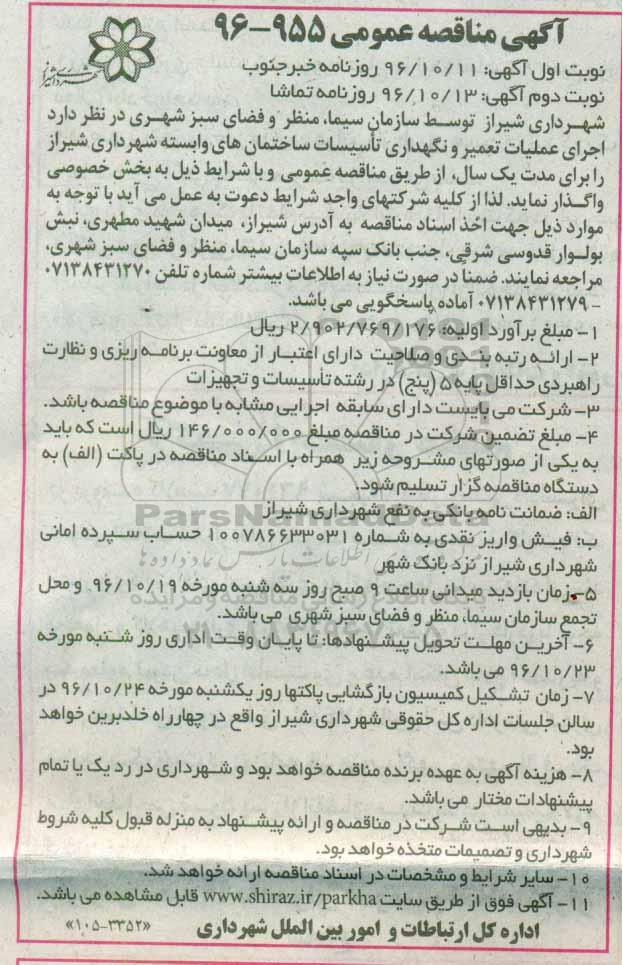 آگهی مناقصه عمومی ۹۵۵-۹۶
شهرداری شیراز
نوبت اول آگهی: ۹۶/۱۰/۱۱ روزنامه خبرجنوب
نوبت دوم آگهی: ۹۶/۱۰/۱۳ روزنامه تماشا
شهرداری شیراز توسط سازمان سیما، منظر و فضای سبز شهری در نظر دارد
اجرای عملیات تعمیر و نگهداری تأسیسات ساختمان های وابسته شهرداری شیراز
را برای مدت یک سال، از طریق مناقصه عمومی و با شرایط ذیل به بخش خصوصی
واگذار نماید. لذا از کلیه شرکتهای واجد شرایط دعوت به عمل می آید با توجه به
موارد ذیل جهت اخذ اسناد مناقصه به آدرس شیراز، میدان شهید مطهری، نبش
بولوار قدوسی شرقی، جنب بانک سپه سازمان سیما، منظر و فضای سبز شهری،
مراجعه نمایند. ضمنا در صورت نیاز به اطلاعات بیشتر شماره تلفن ۰۷۱۳۸۴۳۱۲۷۰
- ۰۷۱۳۸۴۳۱۲۷۹ آماده پاسخگویی می باشد.
۱- مبلغ برآورد اولیه: ۲/۹۰۲/۷۶۹/۱۷۶ ریال
۲- ارائه رتبه بندی و صلاحیت دارای اعتبار از معاونت برنامه ریزی و نظارت
راهبردی حداقل پایه ۵ (پنج) در رشته تأسیسات و تجهیزات
۳- شرکت می بایست دارای سابقه اجرایی مشابه با موضوع مناقصه باشد.
۴- مبلغ تضمین شرکت در مناقصه مبلغ ۱۴۶/۰۰۰/۰۰۰ ریال است که باید
به یکی از صورتهای مشروحه زیر همراه با اسناد مناقصه در پاکت (الف) به
دستگاه مناقصه گزار تسلیم شود.
الف: ضمانت نامه بانکی به نفع شهرداری شیراز
ParsNamadData
ب: فیش واریز نقدی به شماره ۱۰۰۷۸۶۶۳۳۰۳۱ حساب سپرده امانی
شهرداری شیراز نزد بانک شهر
۵- زمان بازدید میدانی ساعت ۹ صبح روز سه شنبه مورخه ۹۶/۱۰/۱۹ و محل
تجمع سازمان سیما، منظر و فضای سبز شهری می باشد.
۶- آخرین مهلت تحویل پیشنهادها: تا پایان وقت اداری روز شنبه مورخه
۹۶/۱۰/۲۳ می باشد.
۷- زمان تشکیل کمیسیون بازگشایی پاکتها روز یکشنبه مورخه ۹۶/۱۰/۲۴ در
سالن جلسات اداره کل حقوقی شهرداری شیراز واقع در چهارراه خلدبرین خواهد
بود.
۸- هزینه آگهی به عهده برنده مناقصه خواهد بود و شهرداری در رد یک یا تمام
پیشنهادات مختار می باشد.
۹- بدیهی است شرکت در مناقصه و ارائه پیشنهاد به منزله قبول کلیه شروط
شهرداری و تصمیمات متخذه خواهد بود.
۱۰- سایر شرایط و مشخصات در اسناد مناقصه ارائه خواهد شد.
۱۱- آگهی فوق از طریق سایت www.shiraz.ir/parkha قابل مشاهده می باشد.
اداره کل ارتباطات و امور بین الملل شهرداری «۳۳۵۲-۱۰۵»